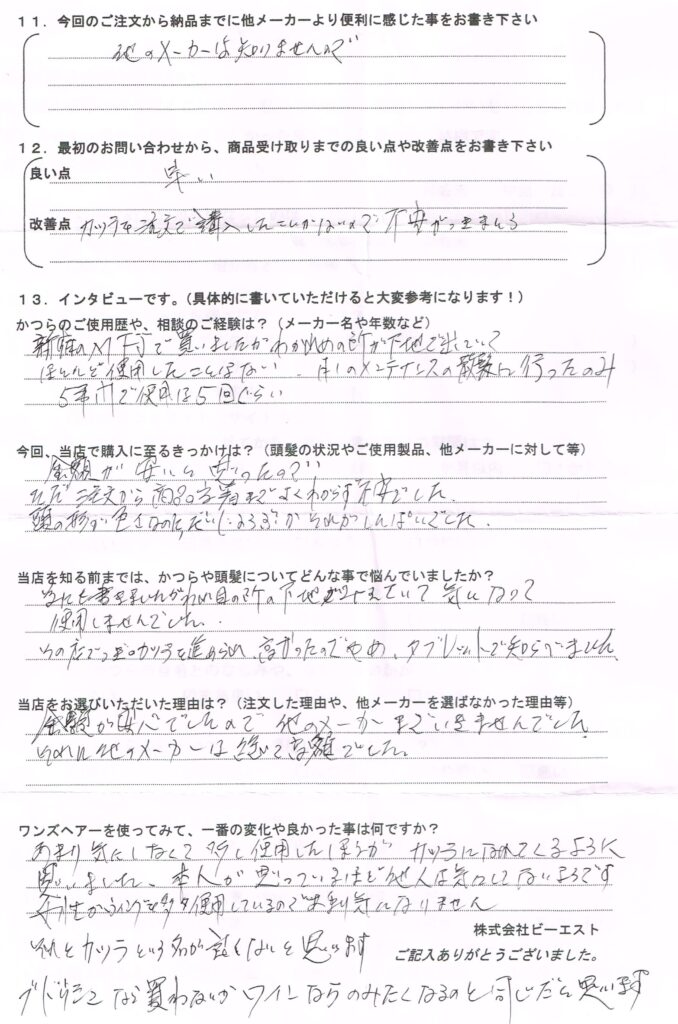 11．今回のご注文から納品までに他メーカーより便利に感じた事をお書き下さい
他のメーカーは知りませんので
12．最初のお問い合わせから、商品受け取りまでの良い点や改善点をお書き下さい
良い点 早い
改善点 カツラを注文で購入したことがないので不安がつきまとう
13．インタビューです。（具体的に書いていただけると大変参考になります！）
かつらのご使用歴や、相談のご経験は？（メーカー名や年数など）
新宿のM で買いましたがわかれめの所が下地で出ていて
ほとんど使用したことはない のメンテナンスの散髪に行ったのみ
5年間で使用は5回ぐらい
今回、当店で購入に至るきっかけは？（頭髪の状況やご使用製品、他メーカーに対して等）
金額が安いと思ったので
ただ注文から商品到着までよくわからず不安でした．
頭の形が それがしんぱいでした．
当店を知る前までは、かつらや頭髪についてどんな事で悩んでいましたか？
わかれ目の所の下地が 気になって
使用しませんでした．
その店で カツラを進められ、高かったのでやめ、タブレットで知らべました
当店をお選びいただいた理由は？（注文した理由や、他メーカーを選ばなかった理由等）
金額が安心でしたので他のメーカーまでいきませんでした
それに他のメーカーは総じて高額でした。
ワンズヘアーを使ってみて、一番の変化や良かった事は何ですか？
あまり気にしなくて多く使用したほうがカツラになれてくるように
思いました、本人が思っているほど他人は気にしてないようです
女性が ウィッグを多々使用しているのであまり気になりません
株式会社ビーエスト
それとカツラという名が よくないと思います
ご記入ありがとうございました。
ブドウシュなら買わないがワインならのみたくなるのと同じだと思います